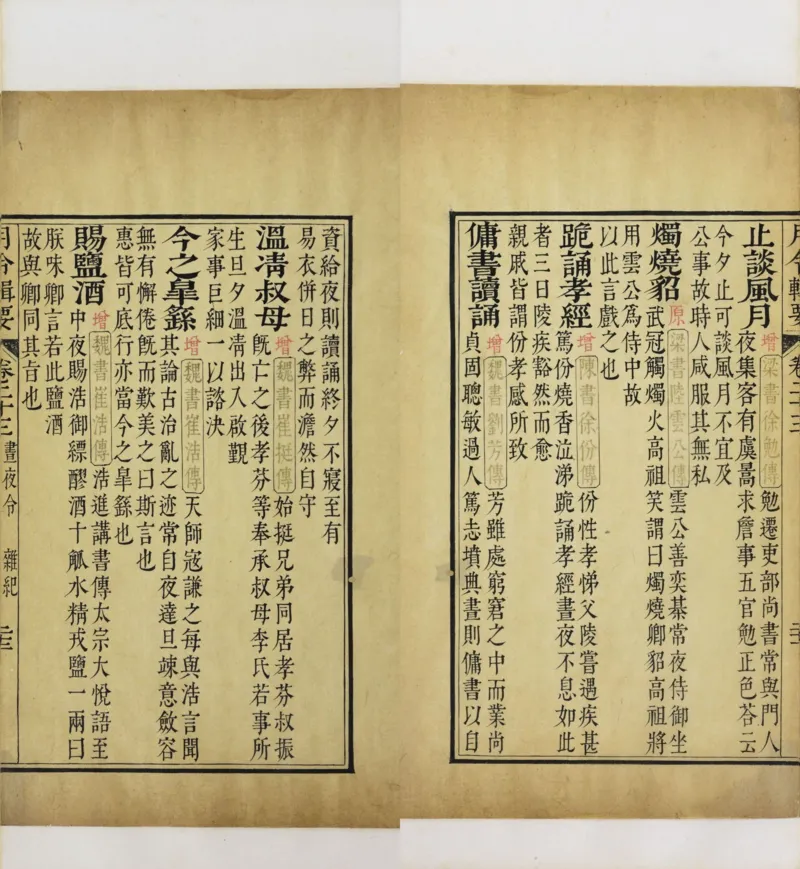 止談風月
增梁書徐勉傳勉遷吏部尚書常與門人
夜集客有虞暠求詹事五官勉正色荅云
今夕止可談風月不宜及
公事故時人咸服其無私
燭燒貂
原梁書陸雲公傳雲公善奕棊常夜侍御坐
武冠觸燭火高祖笑謂曰燭燒卿貂高祖將
用雲公爲侍中故
以此言戲之也
跪誦孝經
增陳書徐份傳份性孝悌父陵嘗遇疾甚
篤份燒香泣涕跪誦孝經晝夜不息如此
者三日陵疾豁然而愈
親戚皆謂份孝感所致
傭書讀誦
增魏書劉芳傳芳雖處窮窘之中而業尚
貞固聰敏過人篤志墳典晝則傭書以自
資給夜則讀誦終夕不寢至有
易衣併日之弊而澹然自守
溫凊叔母
增魏書崔挺傳始挺兄弟同居孝芬叔振
既亡之後孝芬等奉承叔母李氏若事所
生旦夕溫凊出入啟覲
家事巨細一以諮決
今之臯繇
增魏書崔浩傳天師寇謙之每與浩言聞
其論古治亂之迹常自夜達旦竦意斂容
無有懈倦既而歎美之曰斯言也
惠皆可底行亦當今之臯繇也
賜鹽酒
增魏書崔浩傳浩進講書傳太宗大悅語至
中夜賜浩御縹醪酒十觚水精戎鹽一兩曰
朕味卿言若此鹽酒
故與卿同其旨也
月令輯要 卷二十三 晝夜令 雜紀